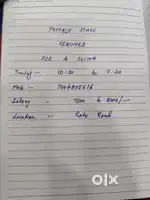 FEMALE STAFF
REQUIRED
FOR A CLINIC
Timing :- 10:30 to 7:30
Mob :- 7004805616
Salary - 7000 to 8000/-
Location - Ratu Road
OLX